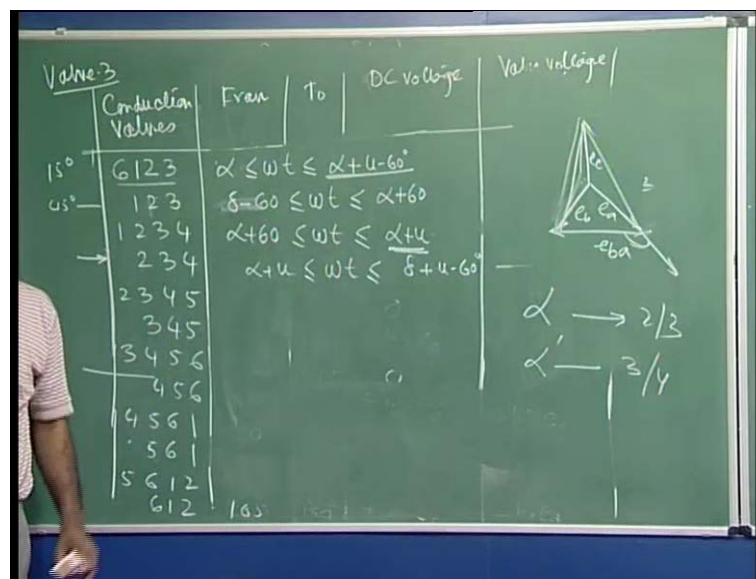 Valve-3
Conduction Valves From To DC voltage Valve voltage
15° 6123 α ≤ ωt ≤ α+u-60°
45° 123 δ-60 ≤ ωt ≤ α+60
1234 α+60 ≤ ωt ≤ α+u
234 α+u ≤ ωt ≤ δ+u-60°
2345
345
3456
456
4561
561
5612
612
ec
eb ea
eba
α → 2/3
α' — 3/4